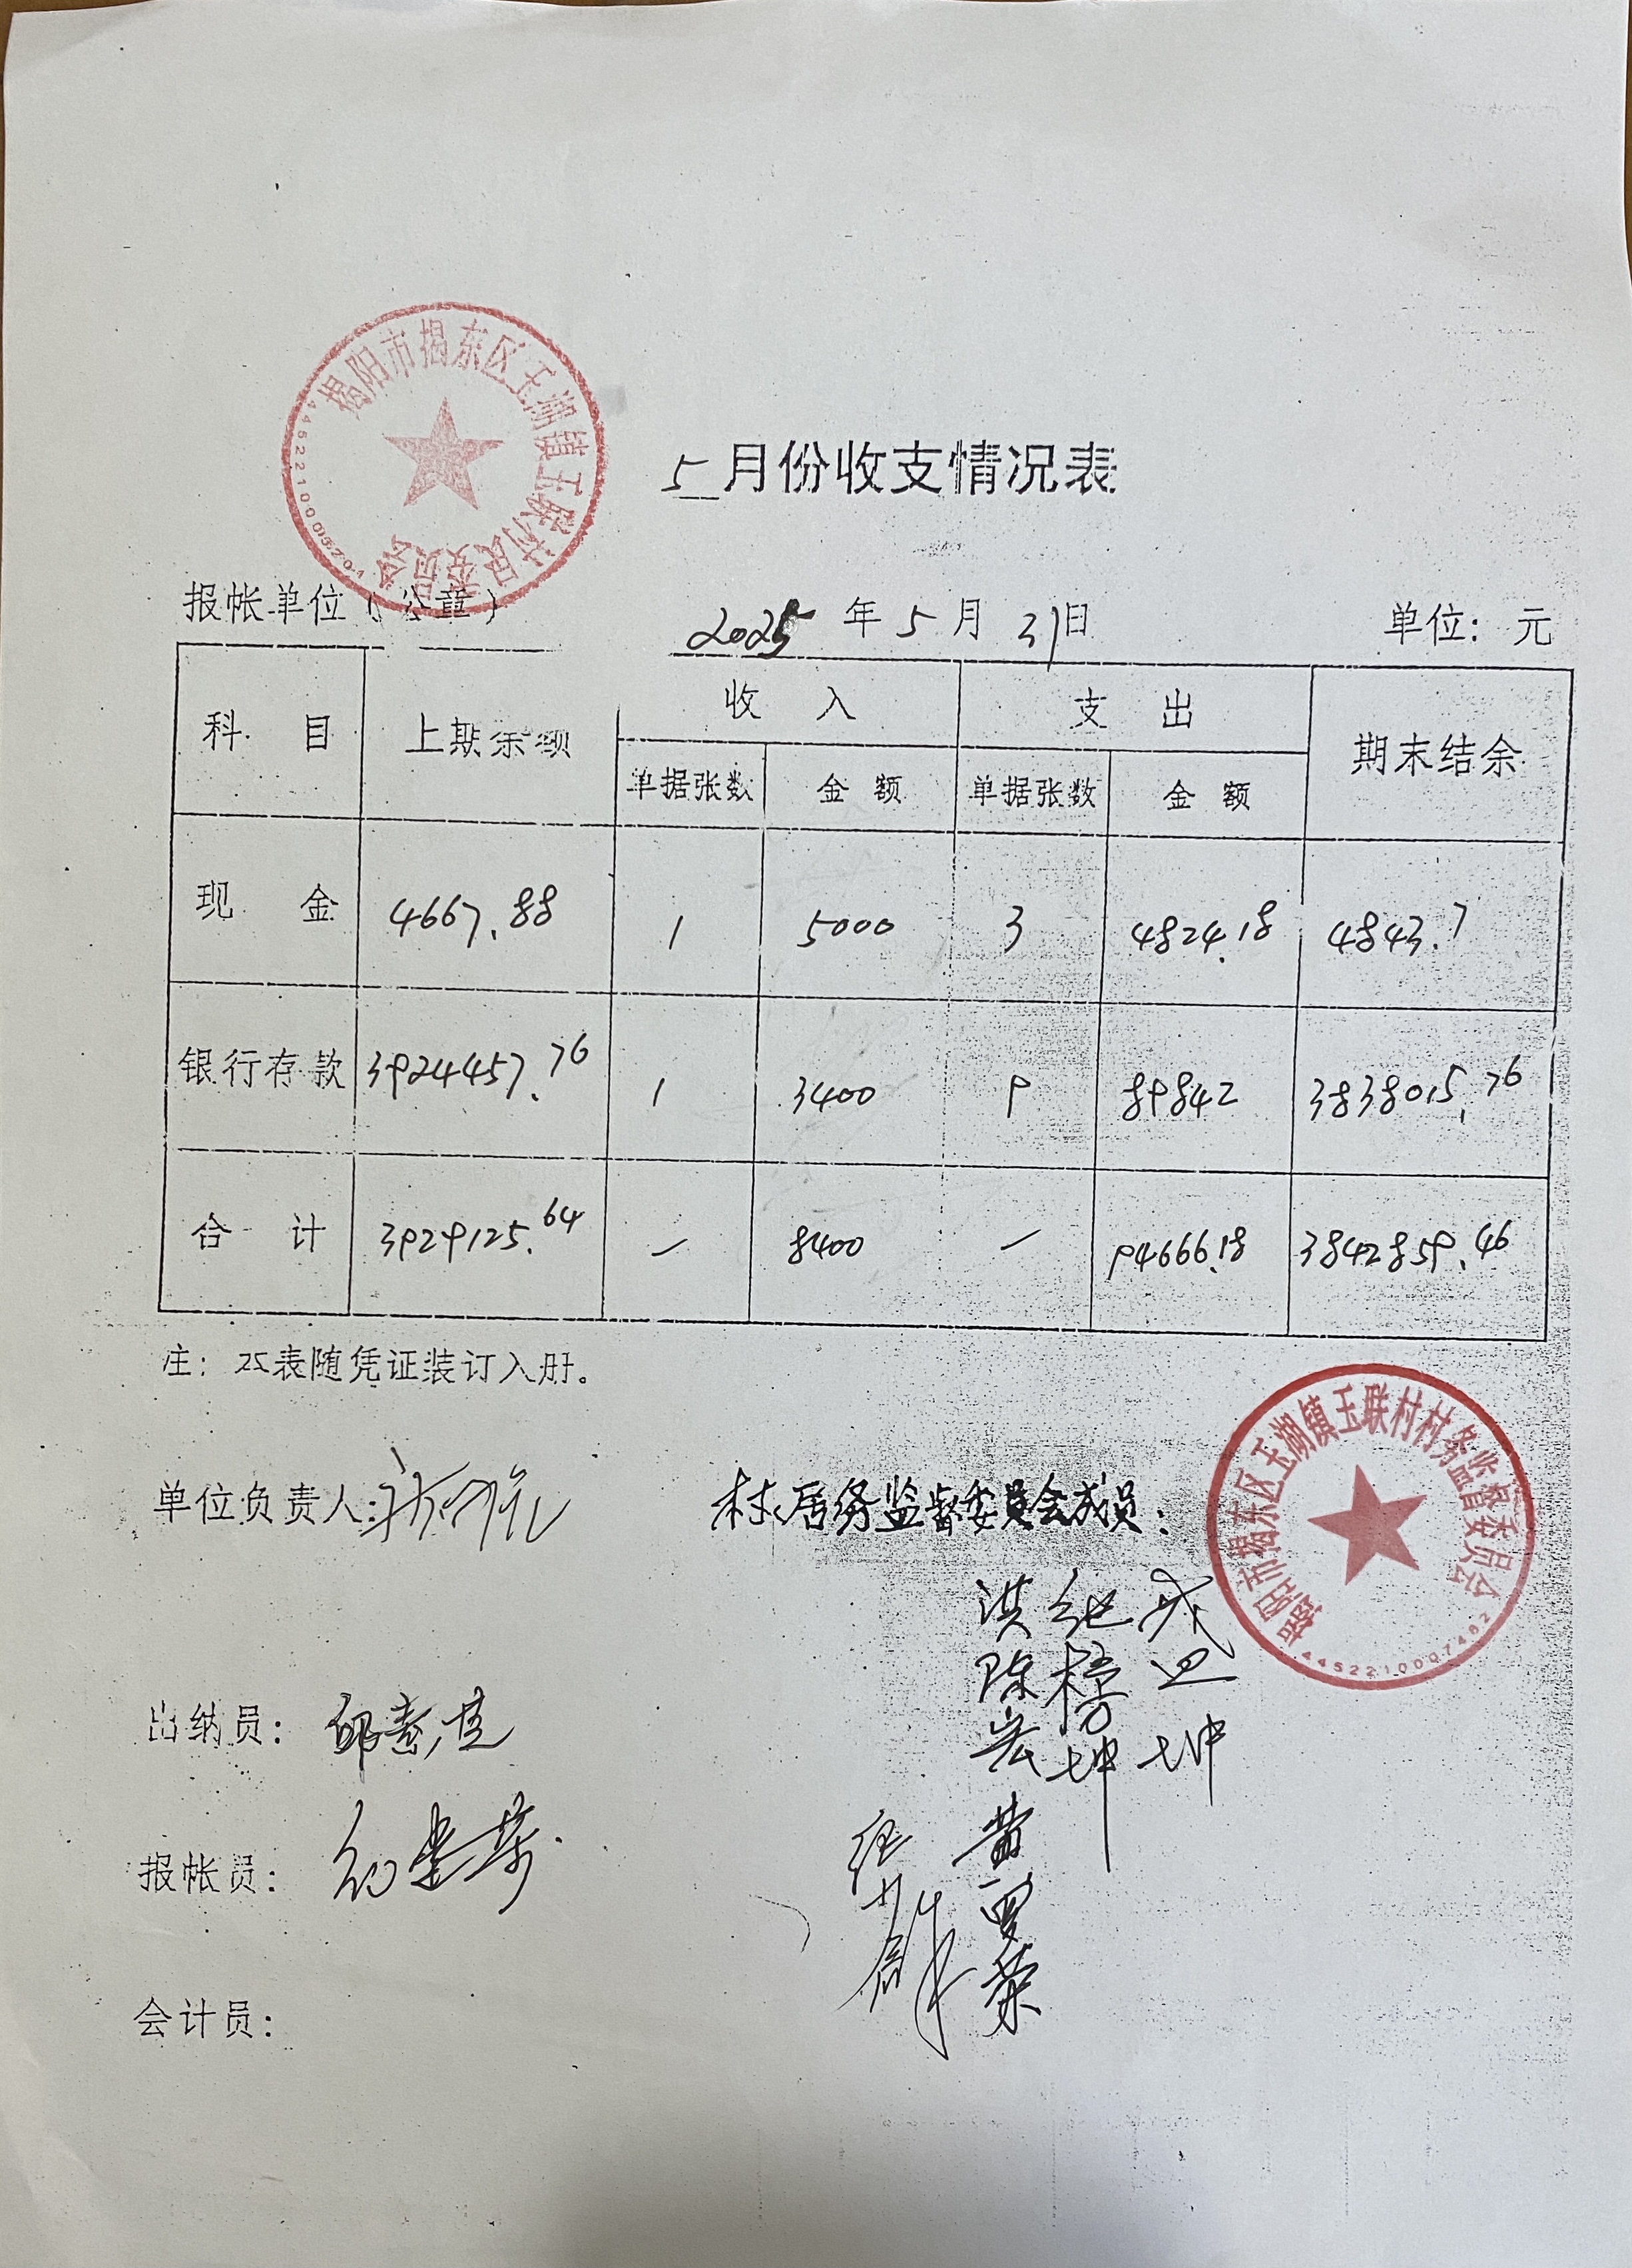 揭阳市揭东区玉湖镇玉联村民委员会
4452210005204
5月份收支情况表
报帐单位（公章）
2025年5月31日
单位：元
科目 上期余额 收入 支出 期末结余
单据张数 金额 单据张数 金额
现金 4667.88 1 5000 3 4824.18 4843.7
银行存款 3924457.76 1 3400 9 89842 3838015.76
合计 3929125.64 — 8400 — 94666.18 3842859.46
注：本表随凭证装订入册。
揭阳市揭东区玉湖镇玉联村村务监督委员会
4452210007482
单位负责人：
村居务监督委员会成员：
洪
陈
出纳员：
黄
报帐员：
会计员：